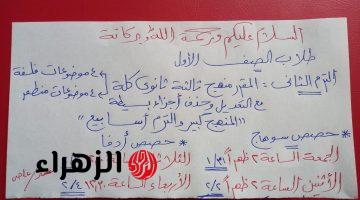 السلام عليكم ورحمة الله وبركاتة
طلاب الصف الأول
الترم الثانى: المقرر منهج ثالثة ثانوى كلة
٤ موضوعات فلسفة
٤ موضوعات منطق
مع التعديل وحذف أجزاء بسيطة
"المنهج كبير والترم أسابيع"
* حصص سوهاج
الجمعة الساعة ٢ ظهراً ١/٣١
الأثنين الساعة ٢ ظهراً ٢/٣
* حصص أدفا
الثلاثاء
الأربعاء الساعة ١٢.٣٠ ٢/٤
الزهراء